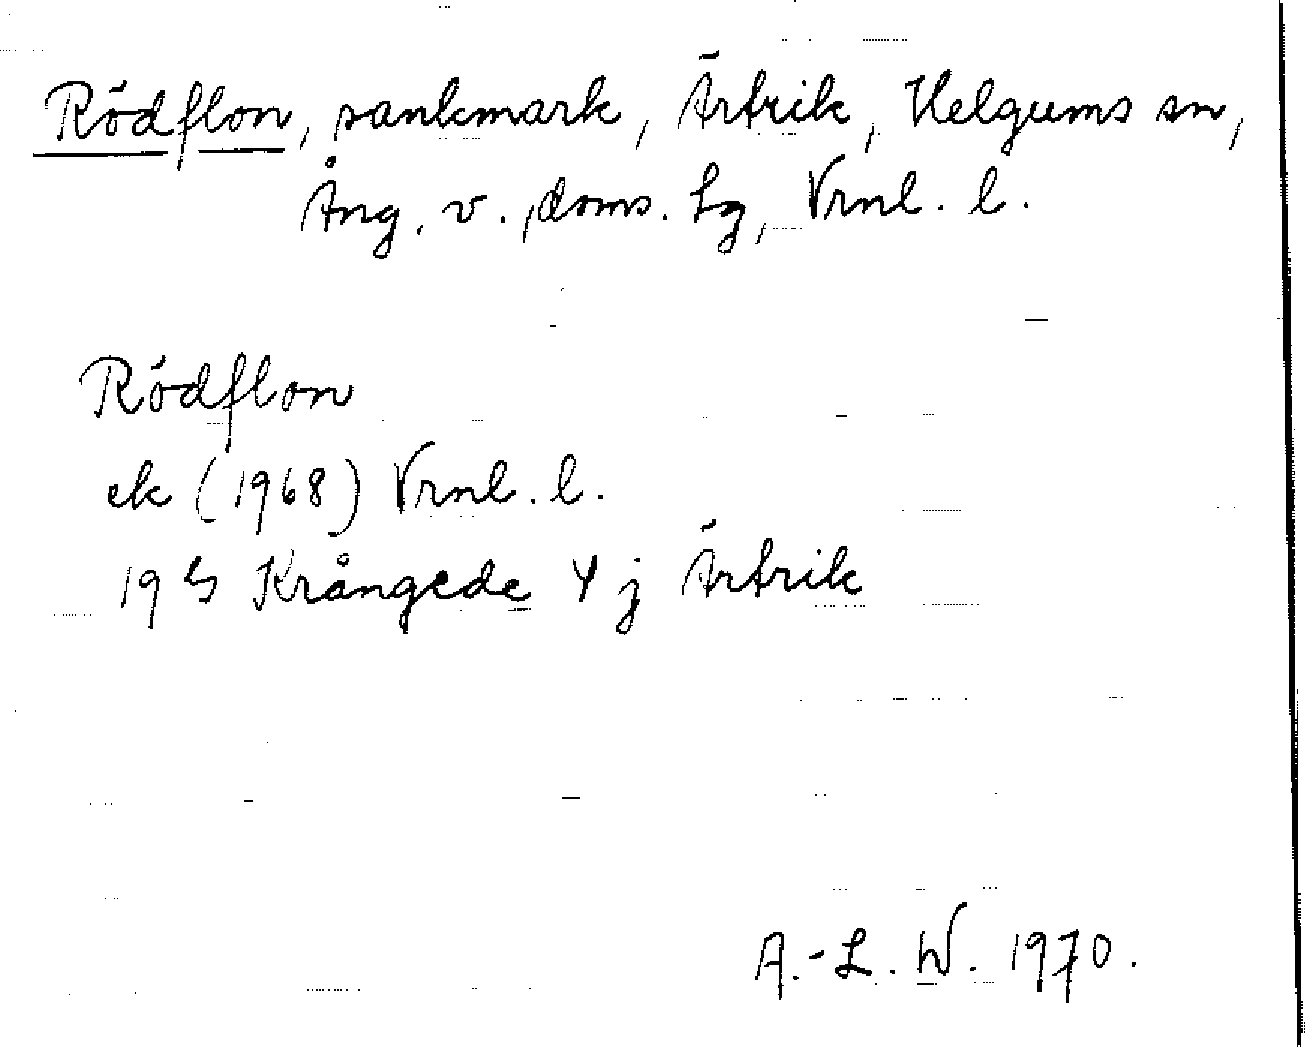 Rödflon, sankmark, Ärtrik, Helgums sn,
Ång. v., doms. Lg, Vrnl. l.
Rödflon
ek (1968) Vrnl. l.
19 Krångede Y j Ärtrik
A.-L. W. 1970.